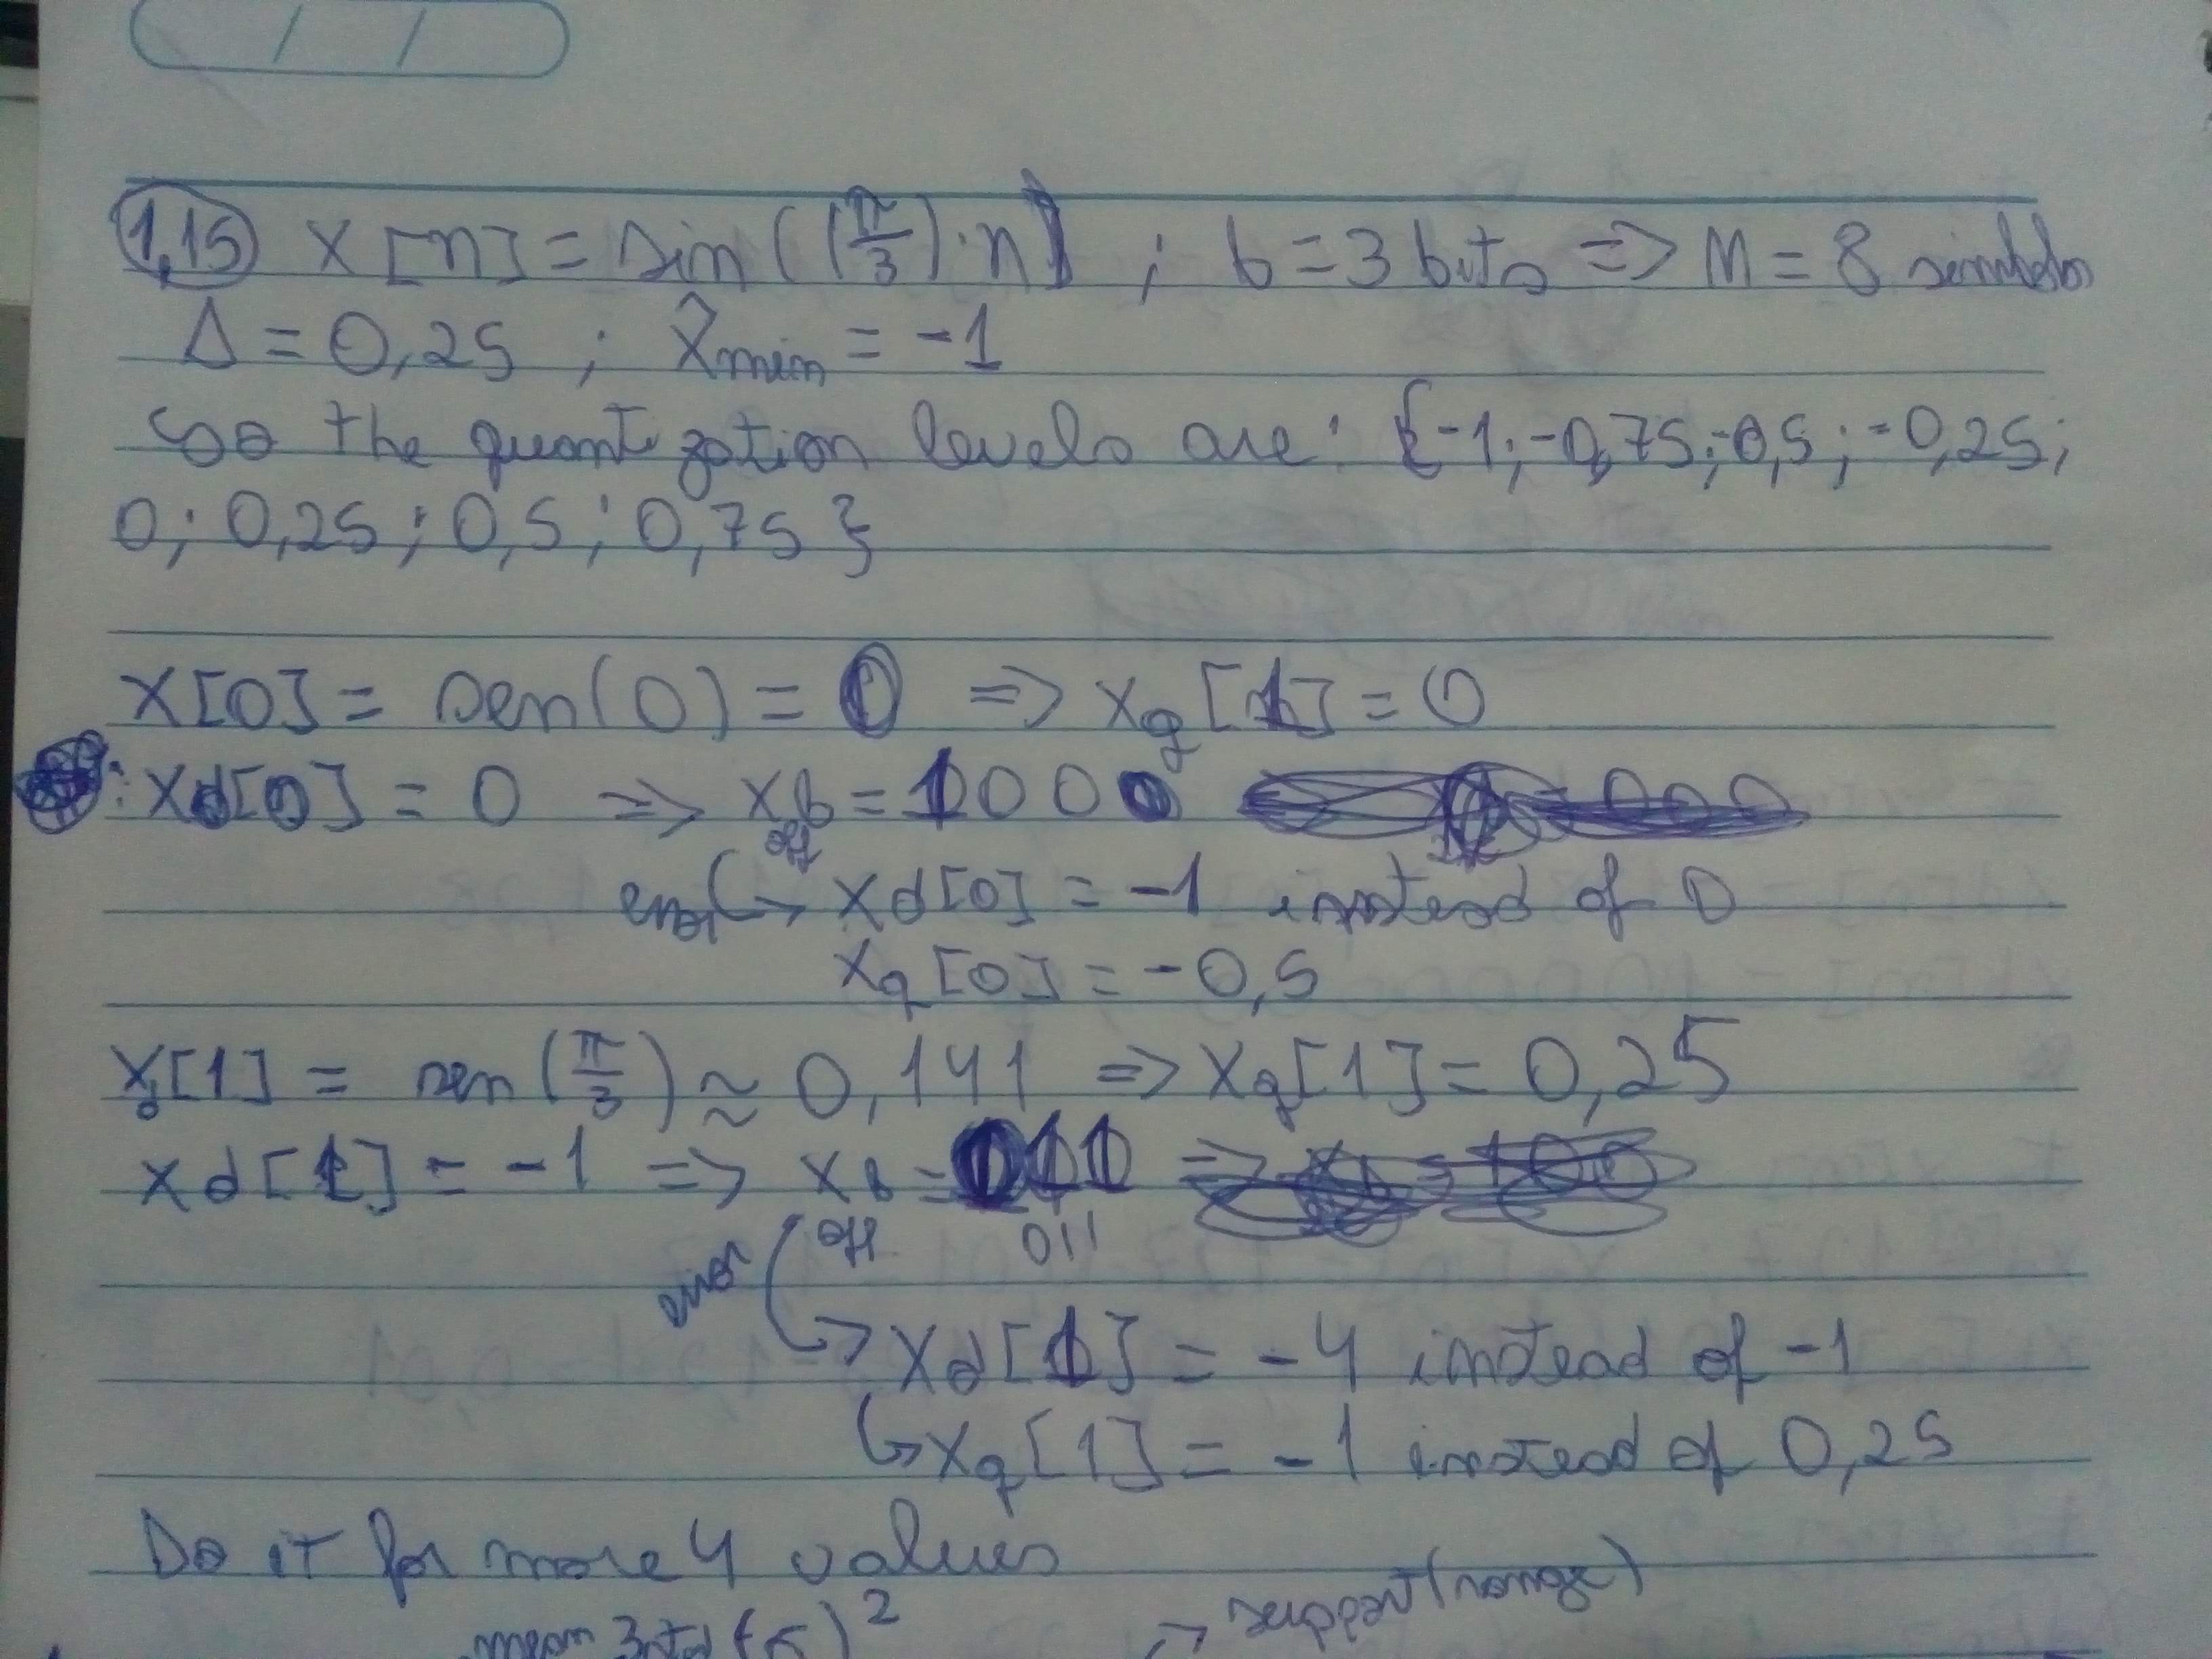 1,15 x[n] = sin((π/3)·n) ; b = 3 bits => M = 8 símbolos
Δ = 0,25 ; X̂min = -1
So the quantization levels are: {-1; -0,75; -0,5; -0,25;
0; 0,25; 0,5; 0,75}
X[0] = sen(0) = 0 => Xq[1] = 0
: Xd[0] = 0 => Xb = 100
off
error → Xd[0] = -1 instead of 0
Xq[0] = -0,5
X[1] = sen(π/3) ≈ 0,141 => Xq[1] = 0,25
Xd[1] = -1 => Xb = 011
off 011
error
→ Xd[1] = -4 instead of -1
↳ Xq[1] = -1 instead of 0,25
Do it for more 4 values
mean )² → support (range)